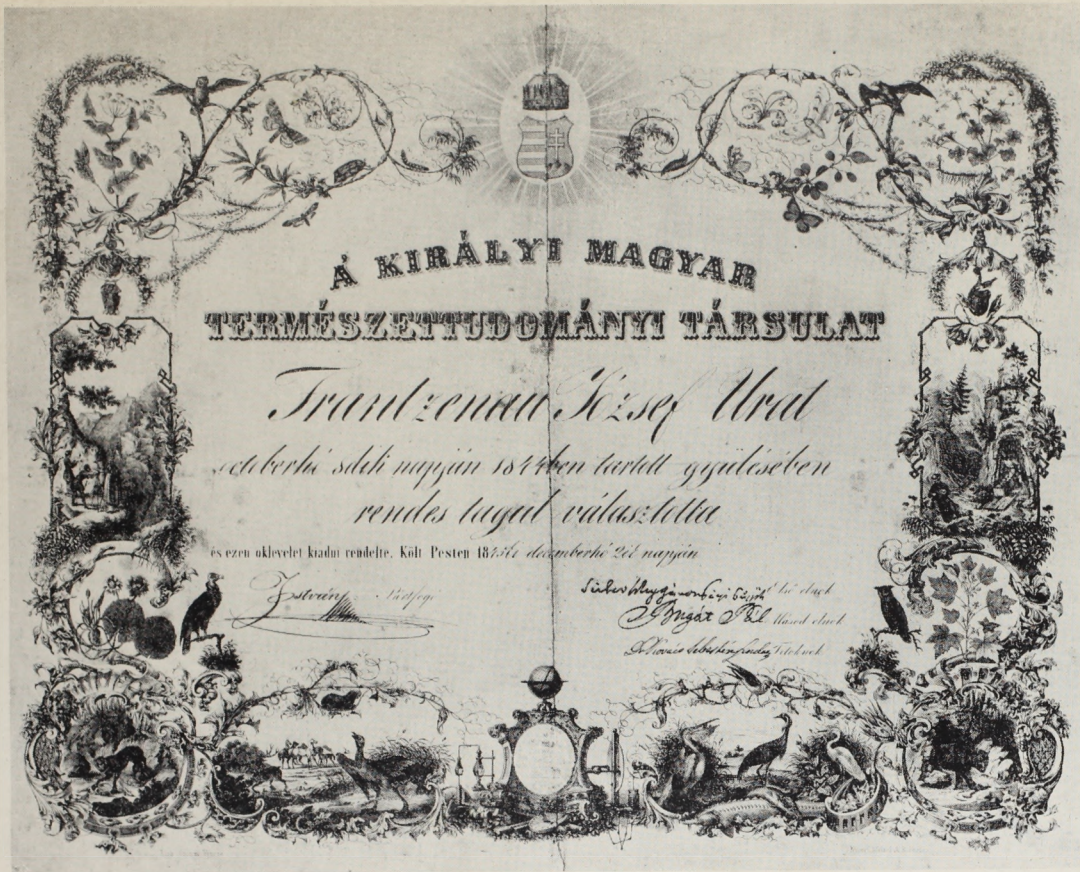 A KIRÁLYI MAGYAR
TERMÉSZETTUDOMÁNYI TÁRSULAT
Frantzenau József Urat
octoberhó napján 1844ben tartott gyülésében
rendes tagul választotta
és ezen oklevelet kiadni rendelte. Költ Pesten decemberhó napján
István Pártfogó
Első elnök
Bugát Pál Másod elnök
Kovács Titoknok